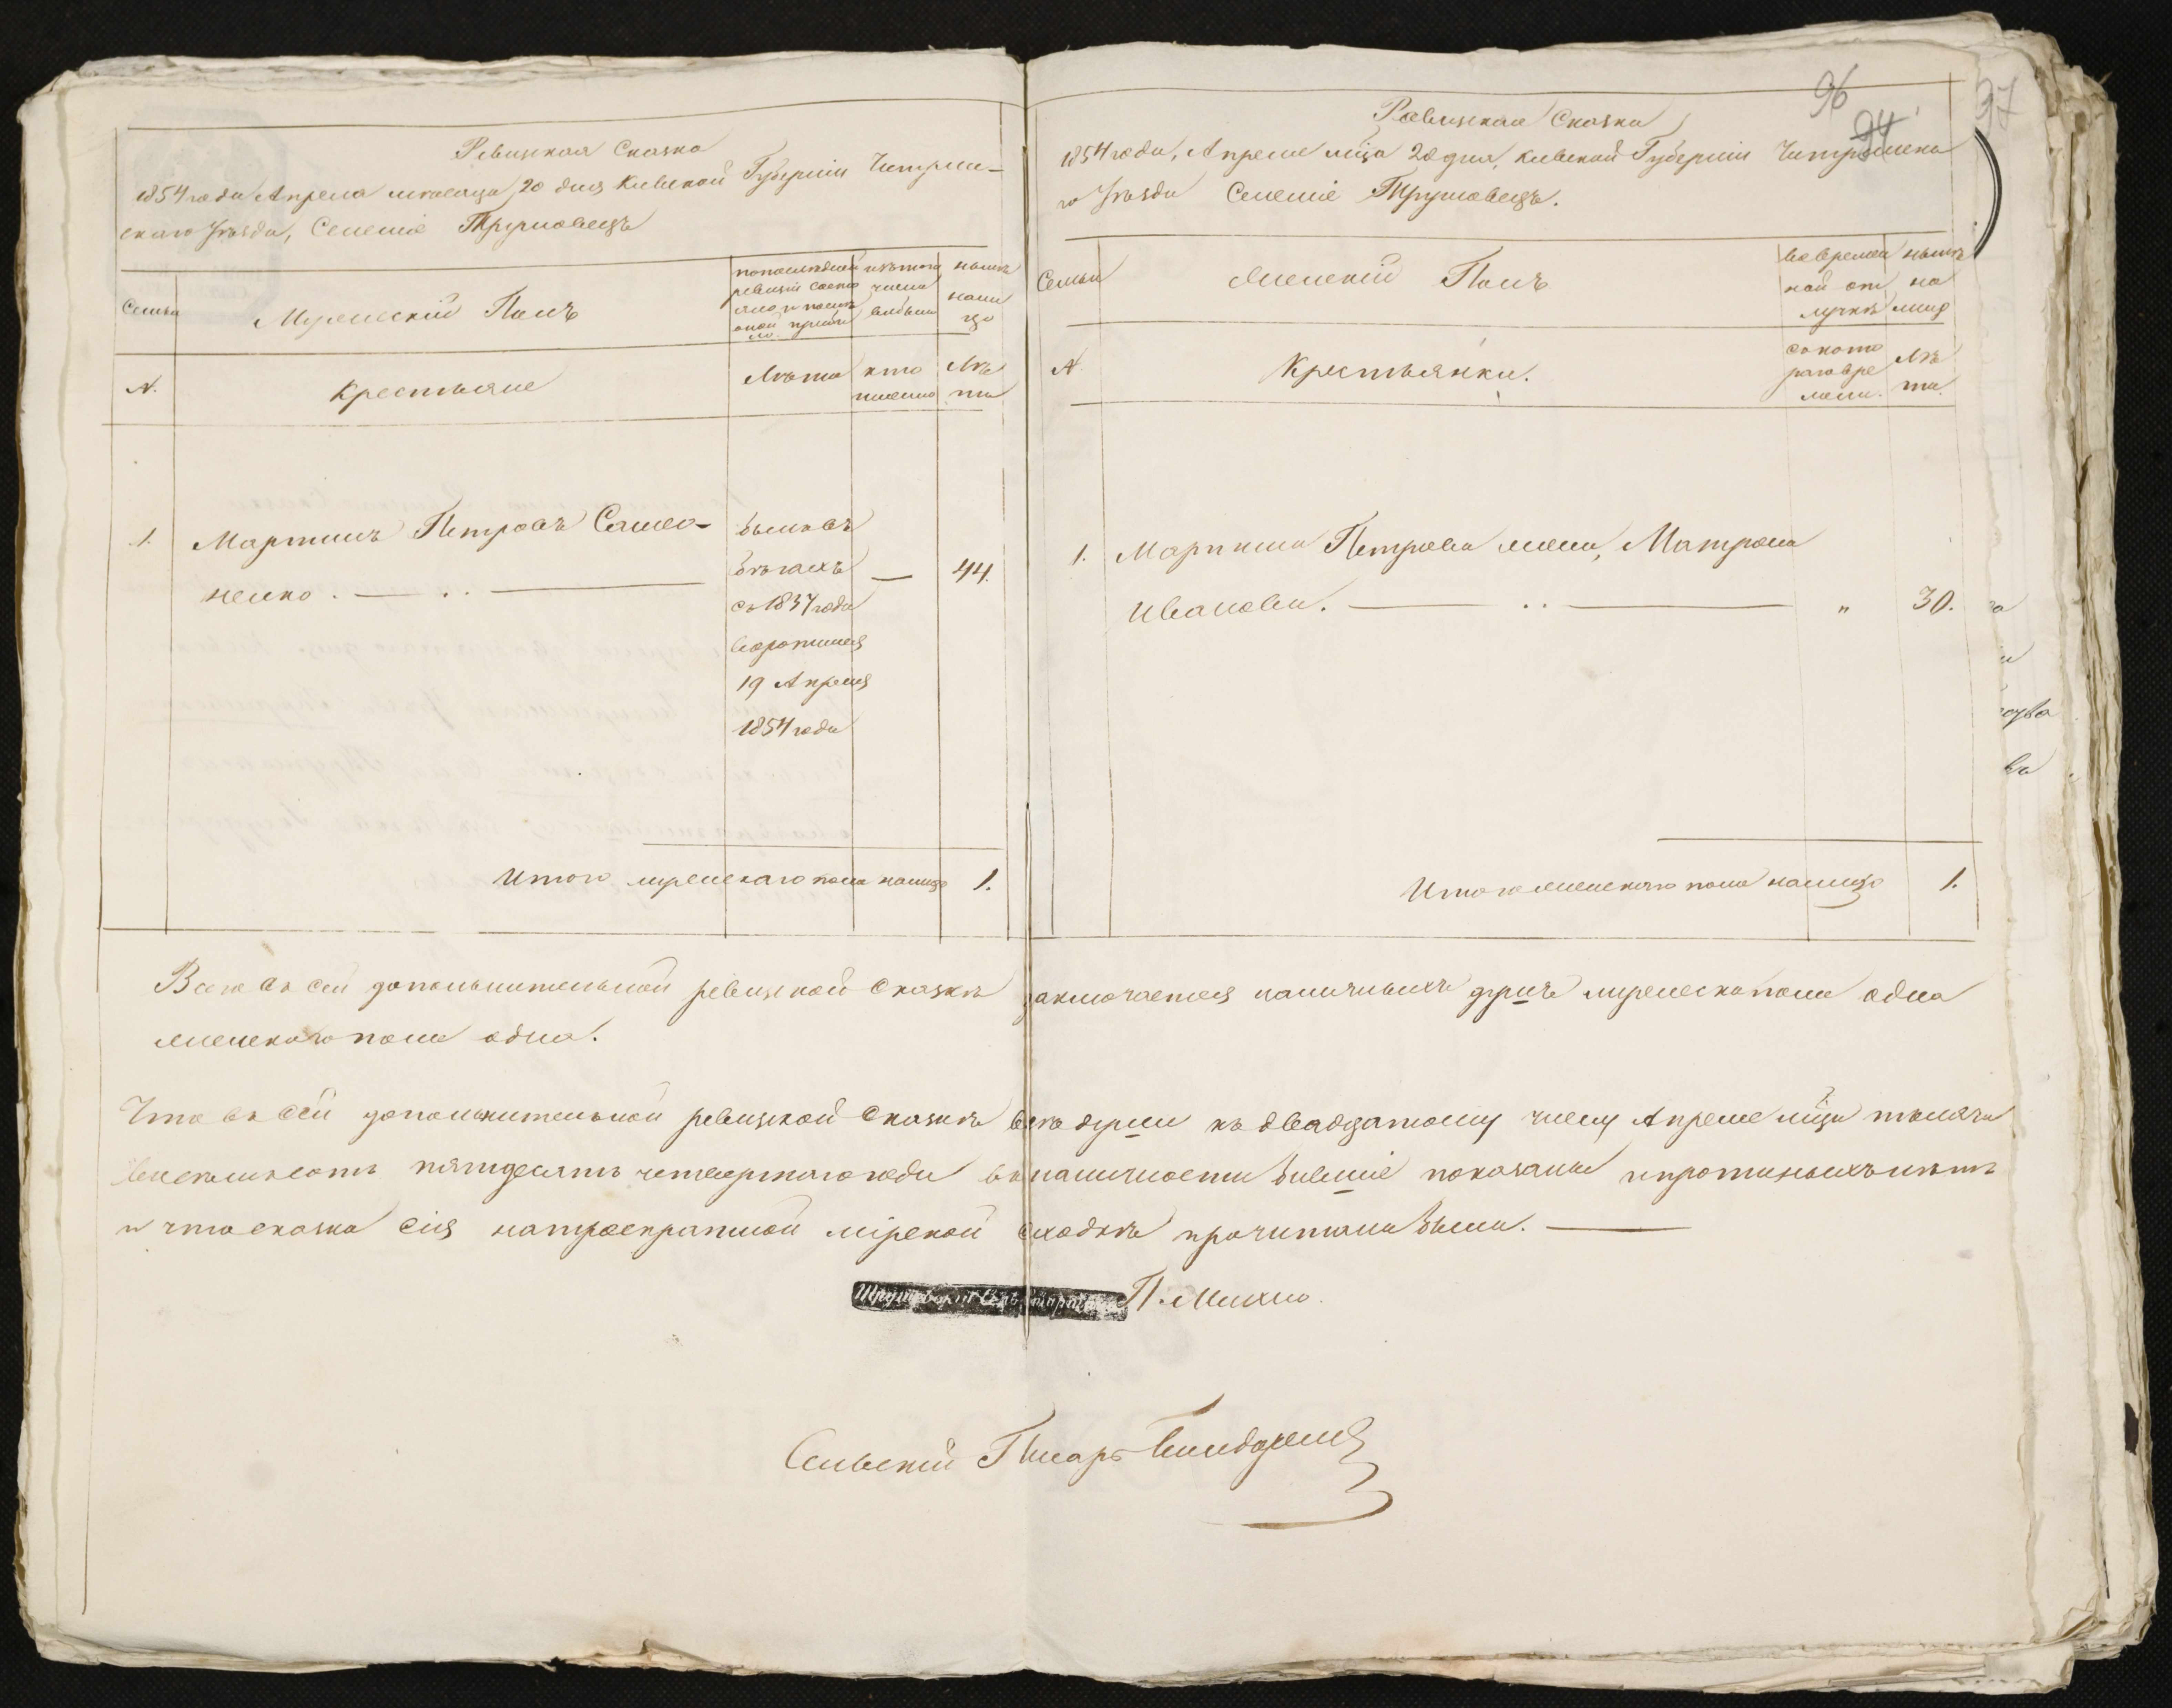 Ревизская Сказка
1854 года Апреля месяца 20 дня Киевской Губернии Чигрин-
скаго Уѣзда, Селеніе Трушовецъ
Семьи
Мужескій Полъ
по последней
ревизіи состо
яло и после
оной прибы
ло
изъ того
числа
выбыло
нынѣ
нали
цо
N.
Крестьяне
Лѣта
кто
именно
Лѣ
та
1.
Мартинъ Петровъ Само-
ненко
былъ въ
бѣгахъ
съ 1837 года
воротился
19 Апреля
1854 года
—
44.
Итого мужескаго пола налицо 1.
96
94
97
Ревизская Сказка
1854 года, Апреля мца 20 дня, Киевской Губерніи Чигринска
го Уѣзда Селеніе Трушовецъ.
Семьи
Женскій Полъ
во времен
ной от
лучкѣ
нынѣ
на
лицо
N
Крестьянки.
съ кото
раго вре
мени.
Лѣ
та.
1.
Мартина Петрова жена, Матрона
Иванова. " 30.
Итого женскаго пола налицо 1.
Всего въ сей дополнительной ревизской сказкѣ заключается наличныхъ душъ мужеска пола одна
женскаго пола одна.
Что въ сей дополнительной ревизской сказкѣ всѣ души къ двадцатому числу Апреля мца тысяча
восемьсотъ пятдесятъ четвертаго года въ наличности бывшіе показаны и пропиныхъ нѣтъ
и что сказка сія на троекратной мірской сходкѣ прочитана была.
П. Михно.
Сельскій Писарь